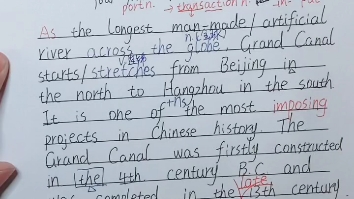 portn. → transaction n.
n.
As the longest man-made/artificial
river across the globe, Grand Canal
v.
starts/stretches from Beijing in
the north to Hangzhou in the south
+ns/
It is one of the most imposing
projects in Chinese history The
Grand Canal was firstly constructed
in the 4th century B.C and
late
completed in the 13th century